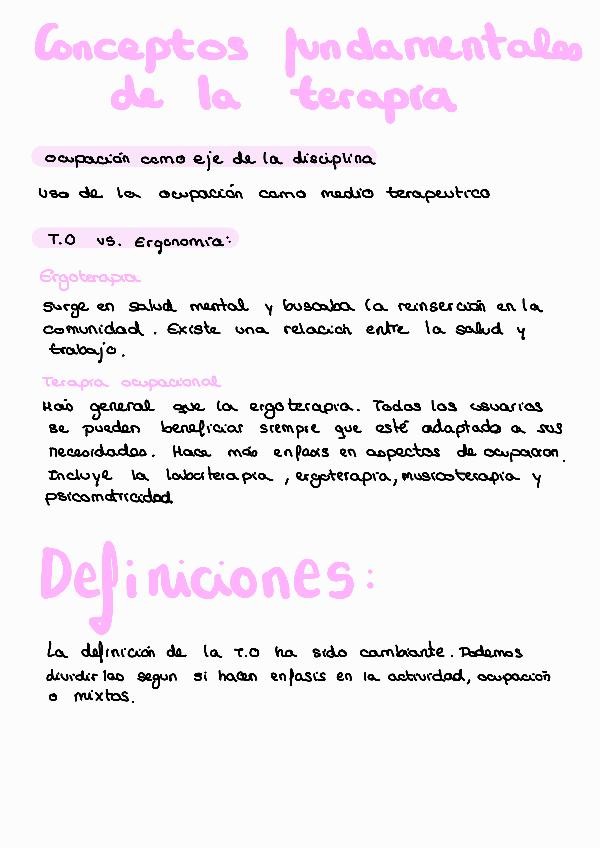 Conceptos fundamentales
de la terapia
ocupación como eje de la disciplina
uso de la ocupación como medio terapeutico
T.O vs. Ergonomia:
Ergoterapia
Surge en salud mental y buscaba la reinserción en la
comunidad. Existe una relación entre la salud y
trabajo.
Terapia ocupacional
Más general que la ergoterapia. Todos los usuarios
se pueden beneficiar siempre que esté adaptado a sus
necesidades. Hace más enfasis en aspectos de ocupacion.
Incluye la laborterapia, ergoterapia, musicoterapia y
psicomotricidad.
Definiciones:
La definición de la T.O ha sido cambiante. Podemos
dividirlas segun si hacen enfasis en la actividad, ocupación
o mixtas.